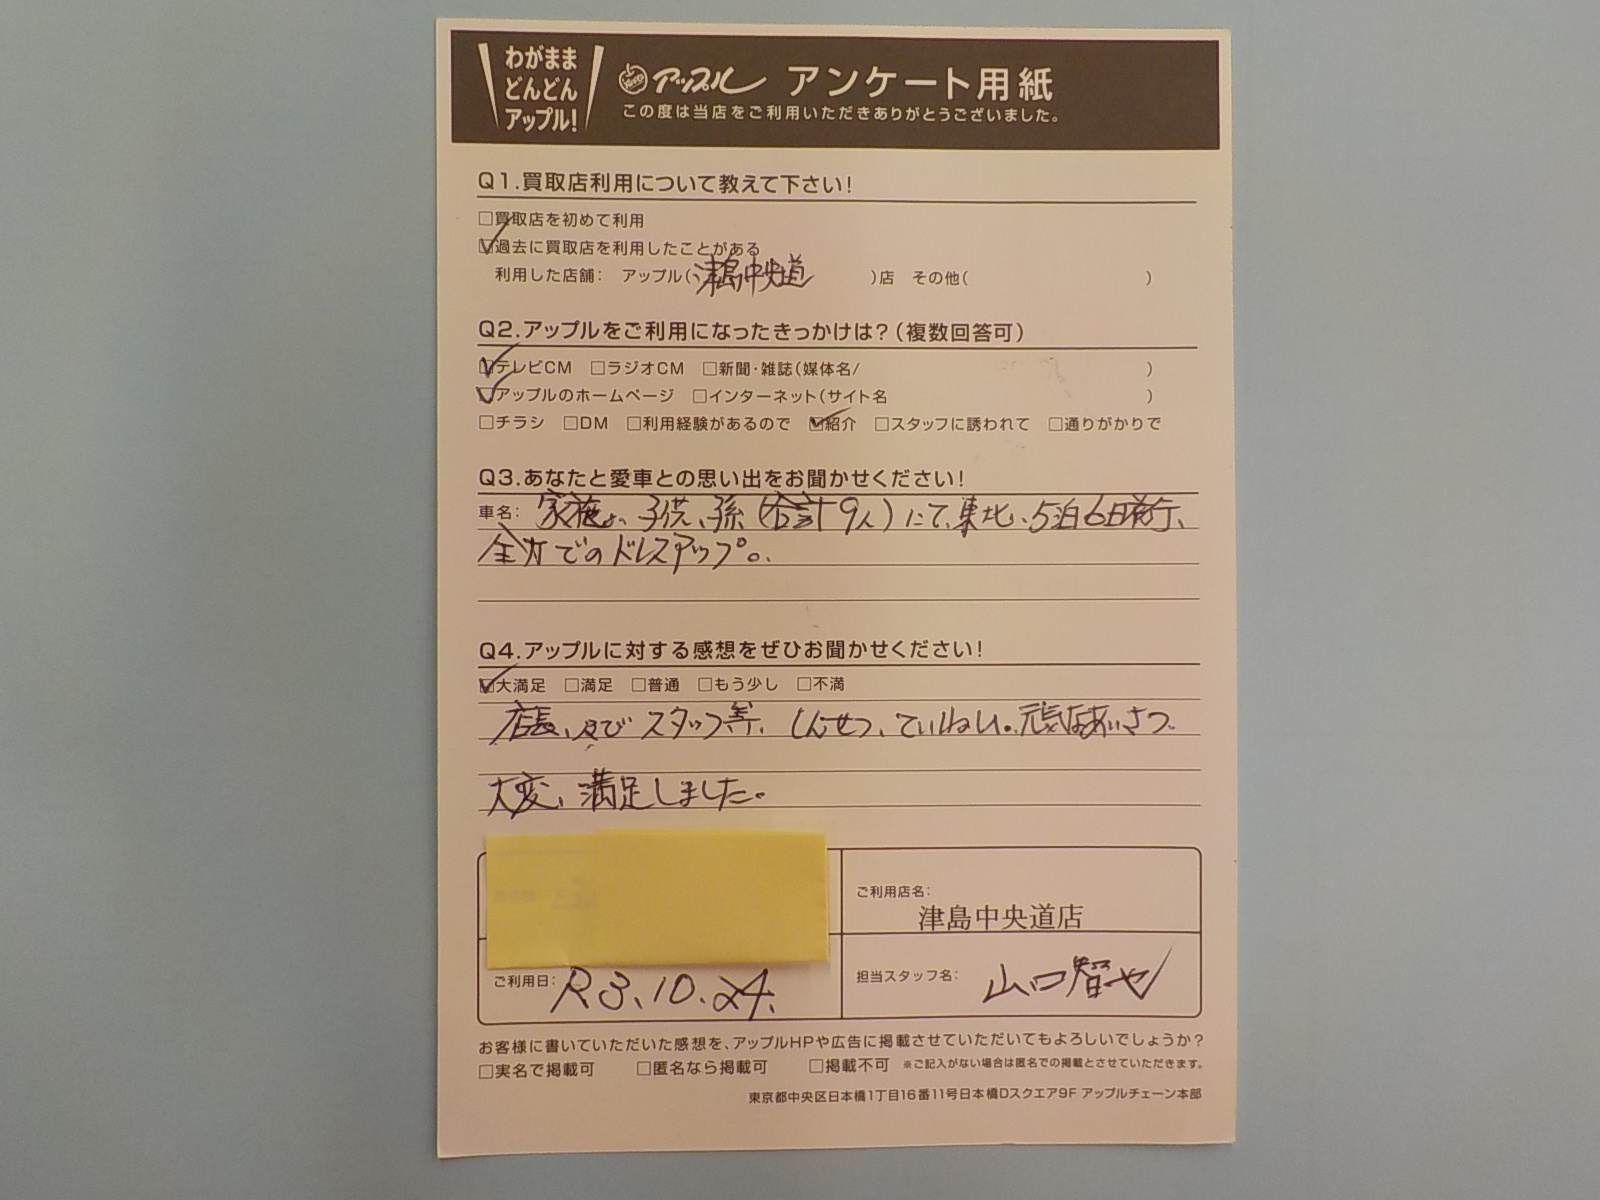 わがまま
どんどん
アップル!
アップル アンケート用紙
この度は当店をご利用いただきありがとうございました。
Q1.買取店利用について教えて下さい!
□買取店を初めて利用
☑過去に買取店を利用したことがある
利用した店舗: アップル(津島中央道 )店 その他( )
Q2.アップルをご利用になったきっかけは?(複数回答可)
☑テレビCM □ラジオCM □新聞・雑誌(媒体名/ )
☑アップルのホームページ □インターネット(サイト名 )
□チラシ □DM □利用経験があるので ☑紹介 □スタッフに誘われて □通りがかりで
Q3.あなたと愛車との思い出をお聞かせください!
車名: 家族、子供、孫(合計9人)にて、東北、5泊6日旅行、
全力でのドレスアップ。
Q4.アップルに対する感想をぜひお聞かせください!
☑大満足 □満足 □普通 □もう少し □不満
店長、及び スタッフ等、しんせつ、ていねい。元気なあいさつ
大変、満足しました。
ご利用店名:
津島中央道店
ご利用日: R3.10.24.
担当スタッフ名: 山口智也
お客様に書いていただいた感想を、アップルHPや広告に掲載させていただいてもよろしいでしょうか?
□実名で掲載可 □匿名なら掲載可 □掲載不可 ※ご記入がない場合は匿名での掲載とさせていただきます。
東京都中央区日本橋1丁目16番11号日本橋Dスクエア9F アップルチェーン本部